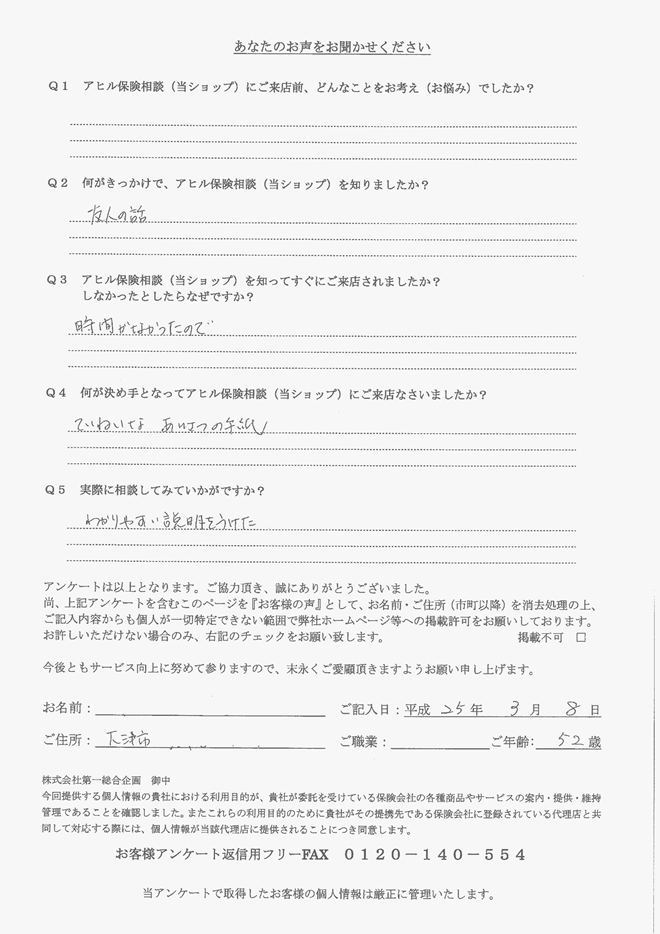 あなたのお声をお聞かせください
Q1 アヒル保険相談（当ショップ）にご来店前、どんなことをお考え（お悩み）でしたか？
Q2 何がきっかけで、アヒル保険相談（当ショップ）を知りましたか？
友人の話
Q3 アヒル保険相談（当ショップ）を知ってすぐにご来店されましたか？
しなかったとしたらなぜですか？
時間がなかったので
Q4 何が決め手となってアヒル保険相談（当ショップ）にご来店なさいましたか？
ていねいな あいさつの手紙
Q5 実際に相談してみていかがですか？
わかりやすい説明をうけた
アンケートは以上となります。ご協力頂き、誠にありがとうございました。
尚、上記アンケートを含むこのページを『お客様の声』として、お名前・ご住所（市町以降）を消去処理の上、
ご記入内容からも個人が一切特定できない範囲で弊社ホームページ等への掲載許可をお願いしております。
お許しいただけない場合のみ、右記のチェックをお願い致します。 掲載不可 □
今後ともサービス向上に努めて参りますので、末永くご愛顧頂きますようお願い申し上げます。
お名前： ご記入日：平成 25 年 3 月 8 日
ご住所： 大津市 ご職業： ご年齢： 52 歳
株式会社第一総合企画 御中
今回提供する個人情報の貴社における利用目的が、貴社が委託を受けている保険会社の各種商品やサービスの案内・提供・維持
管理であることを確認しました。またこれらの利用目的のために貴社がその提携先である保険会社に登録されている代理店と共
同して対応する際には、個人情報が当該代理店に提供されることにつき同意します。
お客様アンケート返信用フリーFAX 0120－140－554
当アンケートで取得したお客様の個人情報は厳正に管理いたします。